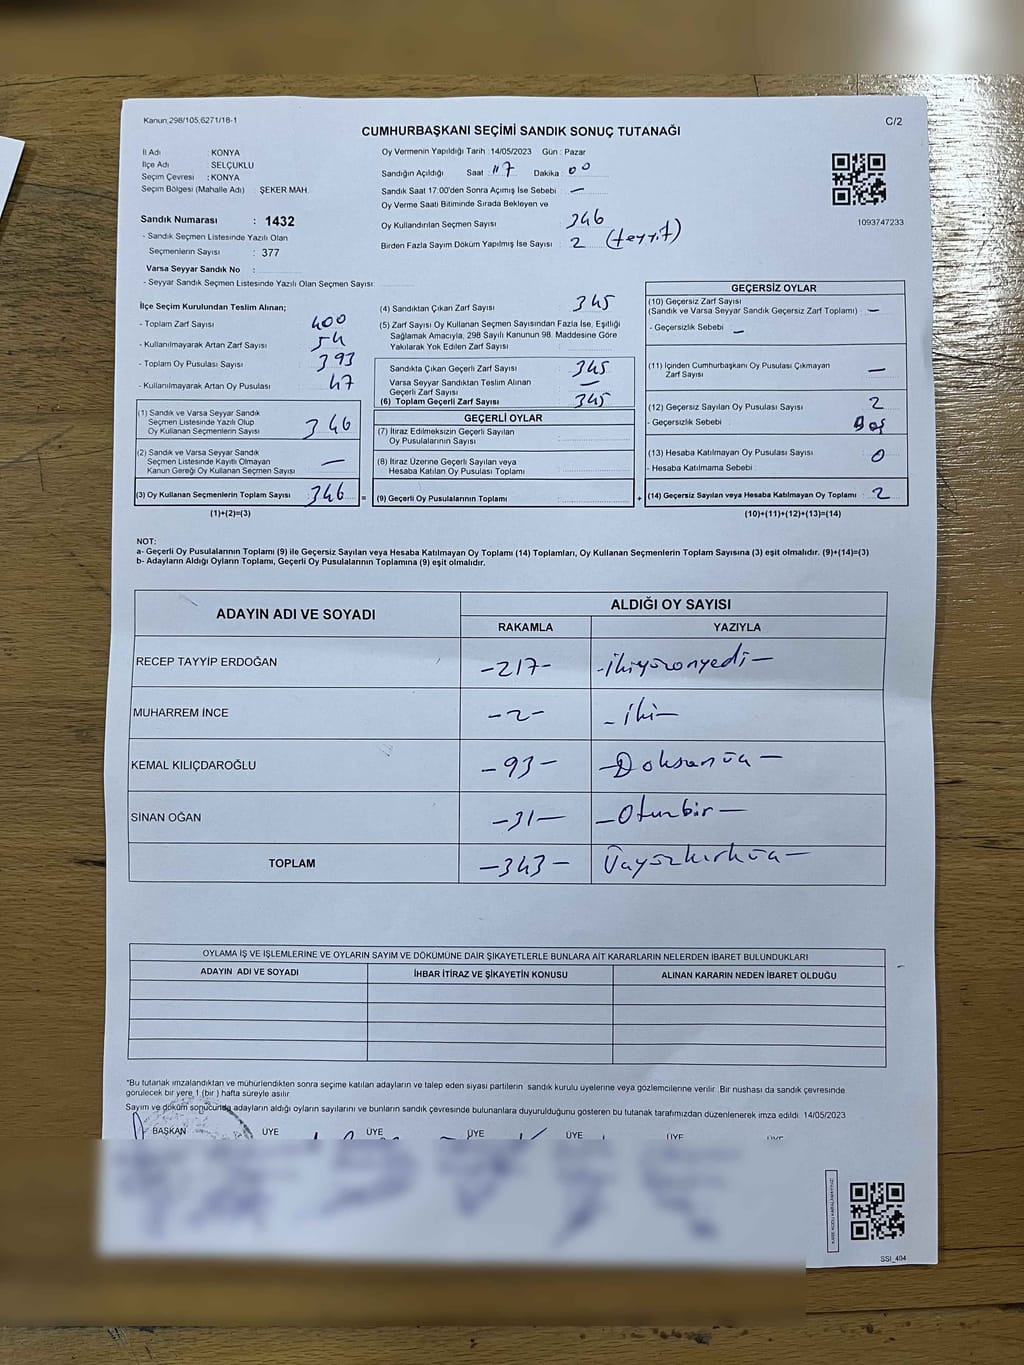 Kanun,298/105,6271/18-1
CUMHURBAŞKANI SEÇİMİ SANDIK SONUÇ TUTANAĞI
C/2
İl Adı KONYA
İlçe Adı SELÇUKLU
Seçim Çevresi : KONYA
Seçim Bölgesi (Mahalle Adı) : ŞEKER MAH.
Sandık Numarası : 1432
- Sandık Seçmen Listesinde Yazılı Olan
Seçmenlerin Sayısı : 377
Varsa Seyyar Sandık No :
- Seyyar Sandık Seçmen Listesinde Yazılı Olan Seçmen Sayısı:
Oy Vermenin Yapıldığı Tarih :14/05/2023 Gün : Pazar
Sandığın Açıldığı Saat : 17 Dakika : 00
Sandık Saat 17.00'den Sonra Açımış İse Sebebi : —
Oy Verme Saati Bitiminde Sırada Bekleyen ve
Oy Kullandırılan Seçmen Sayısı : 346
Birden Fazla Sayım Döküm Yapılmış İse Sayısı : 2 (teyyit)
1093747233
İlçe Seçim Kurulundan Teslim Alınan;
- Toplam Zarf Sayısı : 400
- Kullanılmayarak Artan Zarf Sayısı : 54
- Toplam Oy Pusulası Sayısı : 393
- Kullanılmayarak Artan Oy Pusulası : 47
(1) Sandık ve Varsa Seyyar Sandık
Seçmen Listesinde Yazılı Olup
Oy Kullanan Seçmenlerin Sayısı : 346
(2) Sandık ve Varsa Seyyar Sandık
Seçmen Listesinde Kayıtlı Olmayan
Kanun Gereği Oy Kullanan Seçmen Sayısı : —
(3) Oy Kullanan Seçmenlerin Toplam Sayısı : 346 =
(1)+(2)=(3)
(4) Sandıktan Çıkan Zarf Sayısı : 345
(5) Zarf Sayısı Oy Kullanan Seçmen Sayısından Fazla İse, Eşitliği
Sağlamak Amacıyla, 298 Sayılı Kanunun 98. Maddesine Göre
Yakılarak Yok Edilen Zarf Sayısı :
Sandıkta Çıkan Geçerli Zarf Sayısı : 345
Varsa Seyyar Sandıktan Teslim Alınan
Geçerli Zarf Sayısı : —
(6) Toplam Geçerli Zarf Sayısı : 345
GEÇERLİ OYLAR
(7) İtiraz Edilmeksizin Geçerli Sayılan
Oy Pusulalarının Sayısı :
(8) İtiraz Üzerine Geçerli Sayılan veya
Hesaba Katılan Oy Pusulası Toplamı :
(9) Geçerli Oy Pusulalarının Toplamı : +
GEÇERSİZ OYLAR
(10) Geçersiz Zarf Sayısı
(Sandık ve Varsa Seyyar Sandık Geçersiz Zarf Toplamı) : —
- Geçersizlik Sebebi : —
(11) İçinden Cumhurbaşkanı Oy Pusulası Çıkmayan
Zarf Sayısı : —
(12) Geçersiz Sayılan Oy Pusulası Sayısı : 2
- Geçersizlik Sebebi : Boş
(13) Hesaba Katılmayan Oy Pusulası Sayısı : 0
- Hesaba Katılmama Sebebi :
(14) Geçersiz Sayılan veya Hesaba Katılmayan Oy Toplamı : 2
(10)+(11)+(12)+(13)=(14)
NOT:
a- Geçerli Oy Pusulalarının Toplamı (9) ile Geçersiz Sayılan veya Hesaba Katılmayan Oy Toplamı (14) Toplamları, Oy Kullanan Seçmenlerin Toplam Sayısına (3) eşit olmalıdır. (9)+(14)=(3)
b- Adayların Aldığı Oyların Toplamı, Geçerli Oy Pusulalarının Toplamına (9) eşit olmalıdır.
ADAYIN ADI VE SOYADI ALDIĞI OY SAYISI
RAKAMLA YAZIYLA
RECEP TAYYİP ERDOĞAN -217- -ikiyüzonyedi-
MUHARREM İNCE -2- -iki-
KEMAL KILIÇDAROĞLU -93- -Doksanüç-
SİNAN OĞAN -31- -Otuzbir-
TOPLAM -343- Üçyüzkırküç-
OYLAMA İŞ VE İŞLEMLERİNE VE OYLARIN SAYIM VE DÖKÜMÜNE DAİR ŞİKAYETLERLE BUNLARA AİT KARARLARIN NELERDEN İBARET BULUNDUKLARI
ADAYIN ADI VE SOYADI İHBAR İTİRAZ VE ŞİKAYETİN KONUSU ALINAN KARARIN NEDEN İBARET OLDUĞU
*Bu tutanak imzalandıktan ve mühürlendikten sonra seçime katılan adayların ve talep eden siyasi partilerin sandık kurulu üyelerine veya gözlemcilerine verilir. Bir nüshası da sandık çevresinde
görülecek bir yere 1 (bir) hafta süreyle asılır.
Sayım ve döküm sonucunda adayların aldığı oyların sayılarını ve bunların sandık çevresinde bulunanlara duyurulduğunu gösteren bu tutanak tarafımızdan düzenlenerek imza edildi. 14/05/2023
BAŞKAN ÜYE ÜYE ÜYE ÜYE ÜYE ÜYE
SSI_404